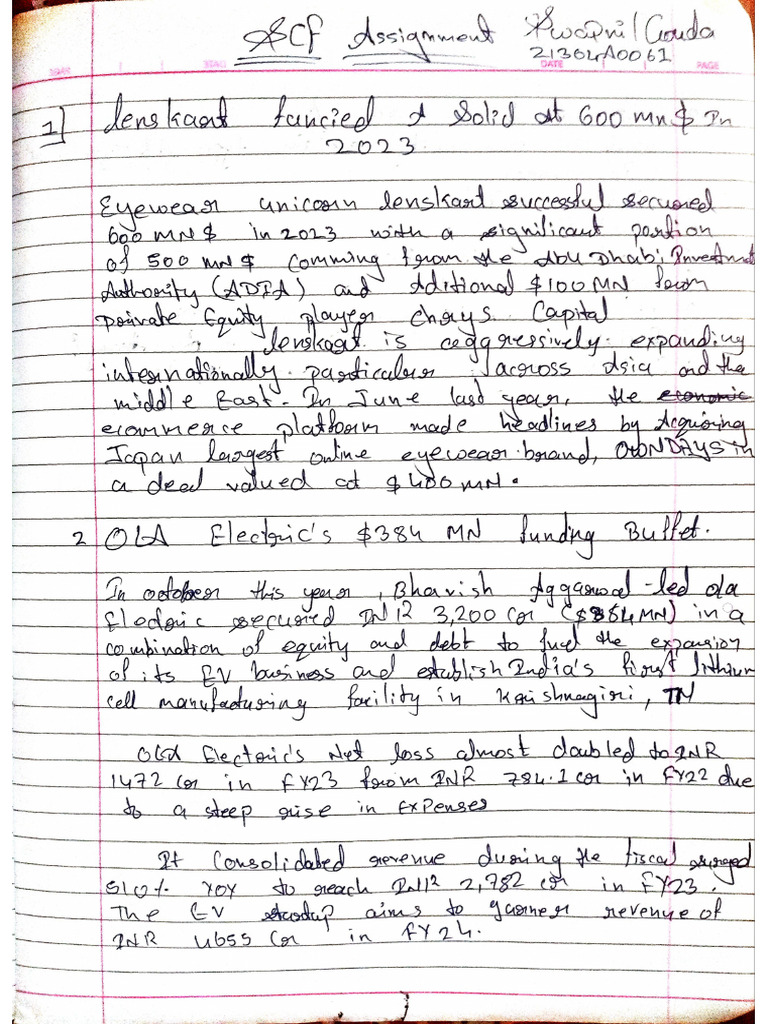 SCF Assignment Swapnil Gouda
21364A0061
DATE PAGE
1] lenskart fancied A Solid at 600 mn $ In
2023
Eyewear unicorn lenskart successful secured
600 MN $ in 2023 with a significant portion
of 500 MN $ comming from the Abu Dhabi Investment
Authority (ADIA) and Aditional $100 MN from
private Equity player Chrys Capital
lenskart is aggressively expanding
internationally particular across Asia and the
middle East. In June last year, the economic
ecommerce platform made headlines by Acquiring
Japan largest online eyewear brand, OWNDAYS in
a deal valued at $400 MN.
2 OLA Electric's $384 MN funding Buffet.
In october this year, Bhavish Aggarwal-led ola
Electric secured INR 3,200 cr ($384 MN) in a
combination of equity and debt to fuel the expansion
of its EV business and establish India's first lithium
cell manufacturing facility in Krishnagiri, TN
OLA Electric's Net loss almost doubled to INR
1472 cr in FY23 from INR 784.1 cr in FY22 due
to a steep rise in Expenses
It Consolidated revenue during the fiscal surged
510% YOY to reach INR 2,782 cr in FY23.
The EV startup aims to garner revenue of
INR 4655 Cr in FY24.